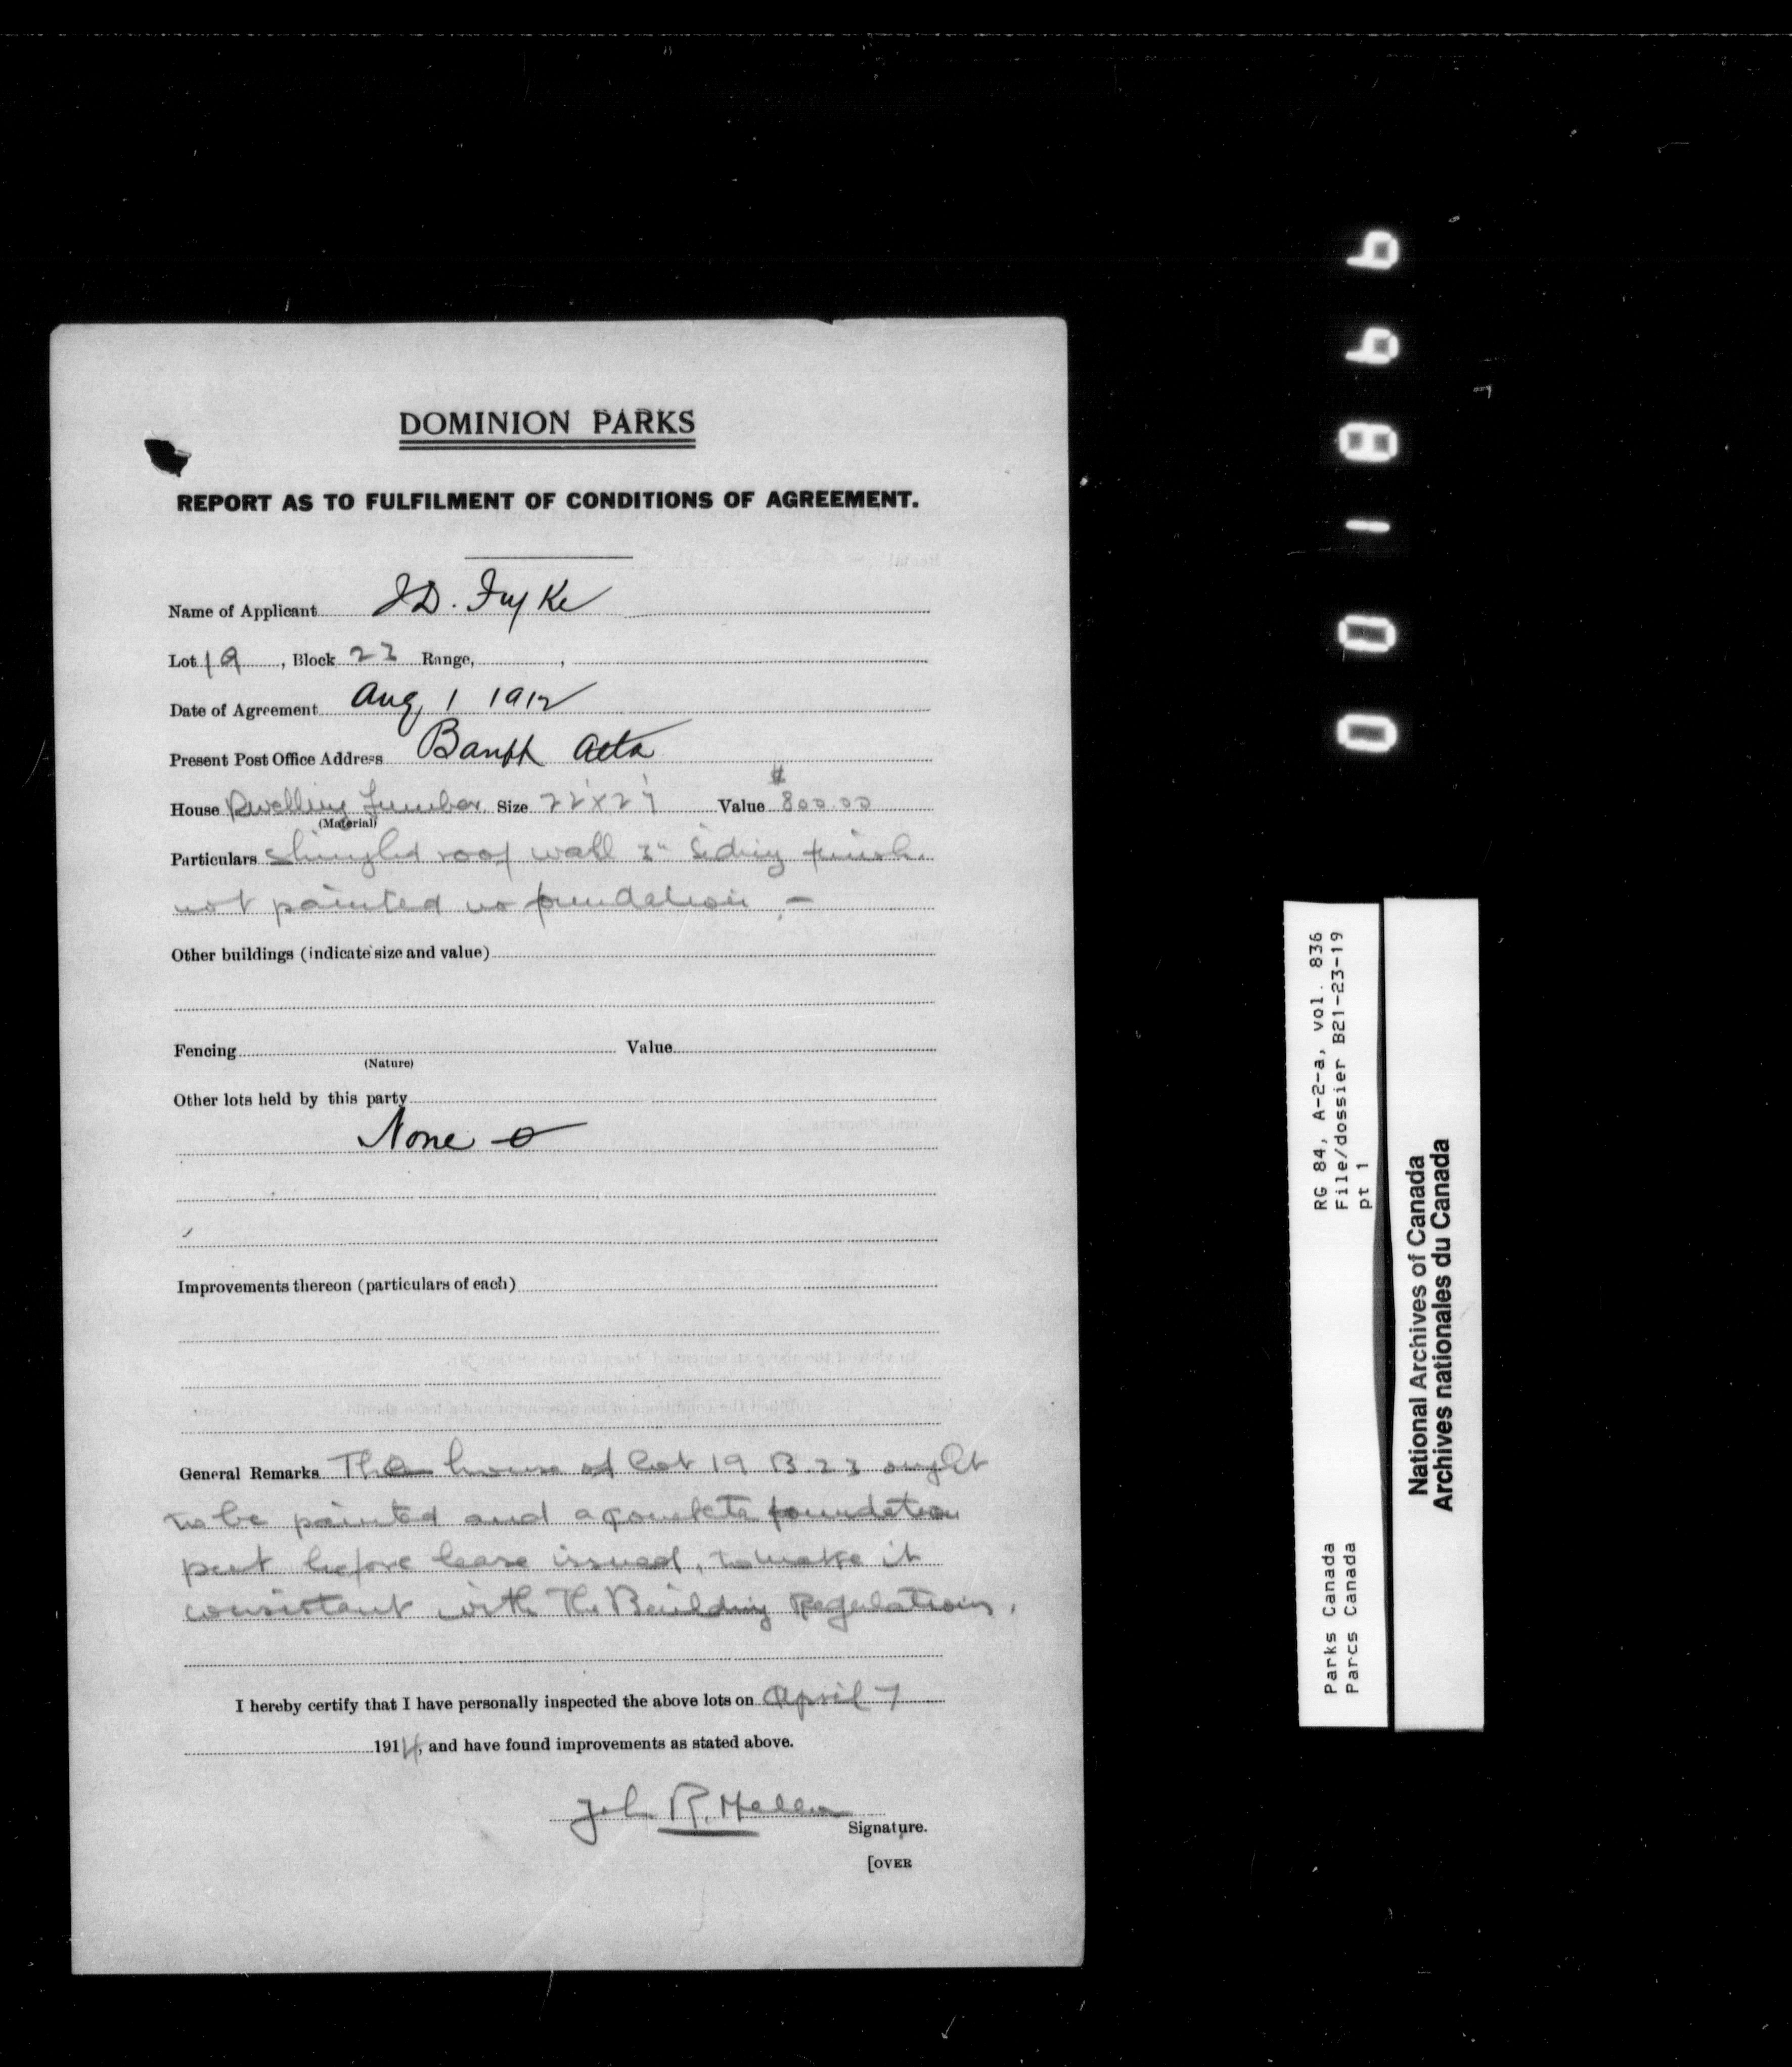 DOMINION PARKS
REPORT AS TO FULFILMENT OF CONDITIONS OF AGREEMENT.
Name of Applicant J D. Fyke
Lot 19, Block 23 Range, ,
Date of Agreement Aug 1 1912
Present Post Office Address Banff Alta
House Dwelling Lumber Size 22'x27' Value $800.00
(Material)
Particulars Shingled roof wall siding finish
not painted no foundation –
Other buildings (indicate size and value)
Fencing Value
(Nature)
Other lots held by this party
None
Improvements thereon (particulars of each)
General Remarks The house at Lot 19 B. 23 ought
to be painted and a concrete foundation
put before lease issued, to make it
consistant with the Building Regulations.
I hereby certify that I have personally inspected the above lots on April 7
1914, and have found improvements as stated above.
John R.
Signature.
[OVER
001899
RG 84, A-2-a, vol. 836
File/dossier B21-23-19
pt 1
Parks Canada
Parcs Canada
National Archives of Canada
Archives nationales du Canada